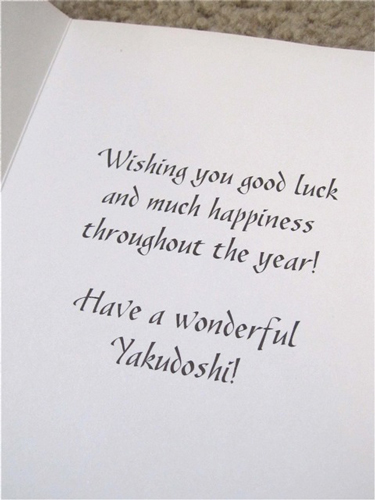 Wishing you good luck
and much happiness
throughout the year!
Have a wonderful
Yakudoshi!